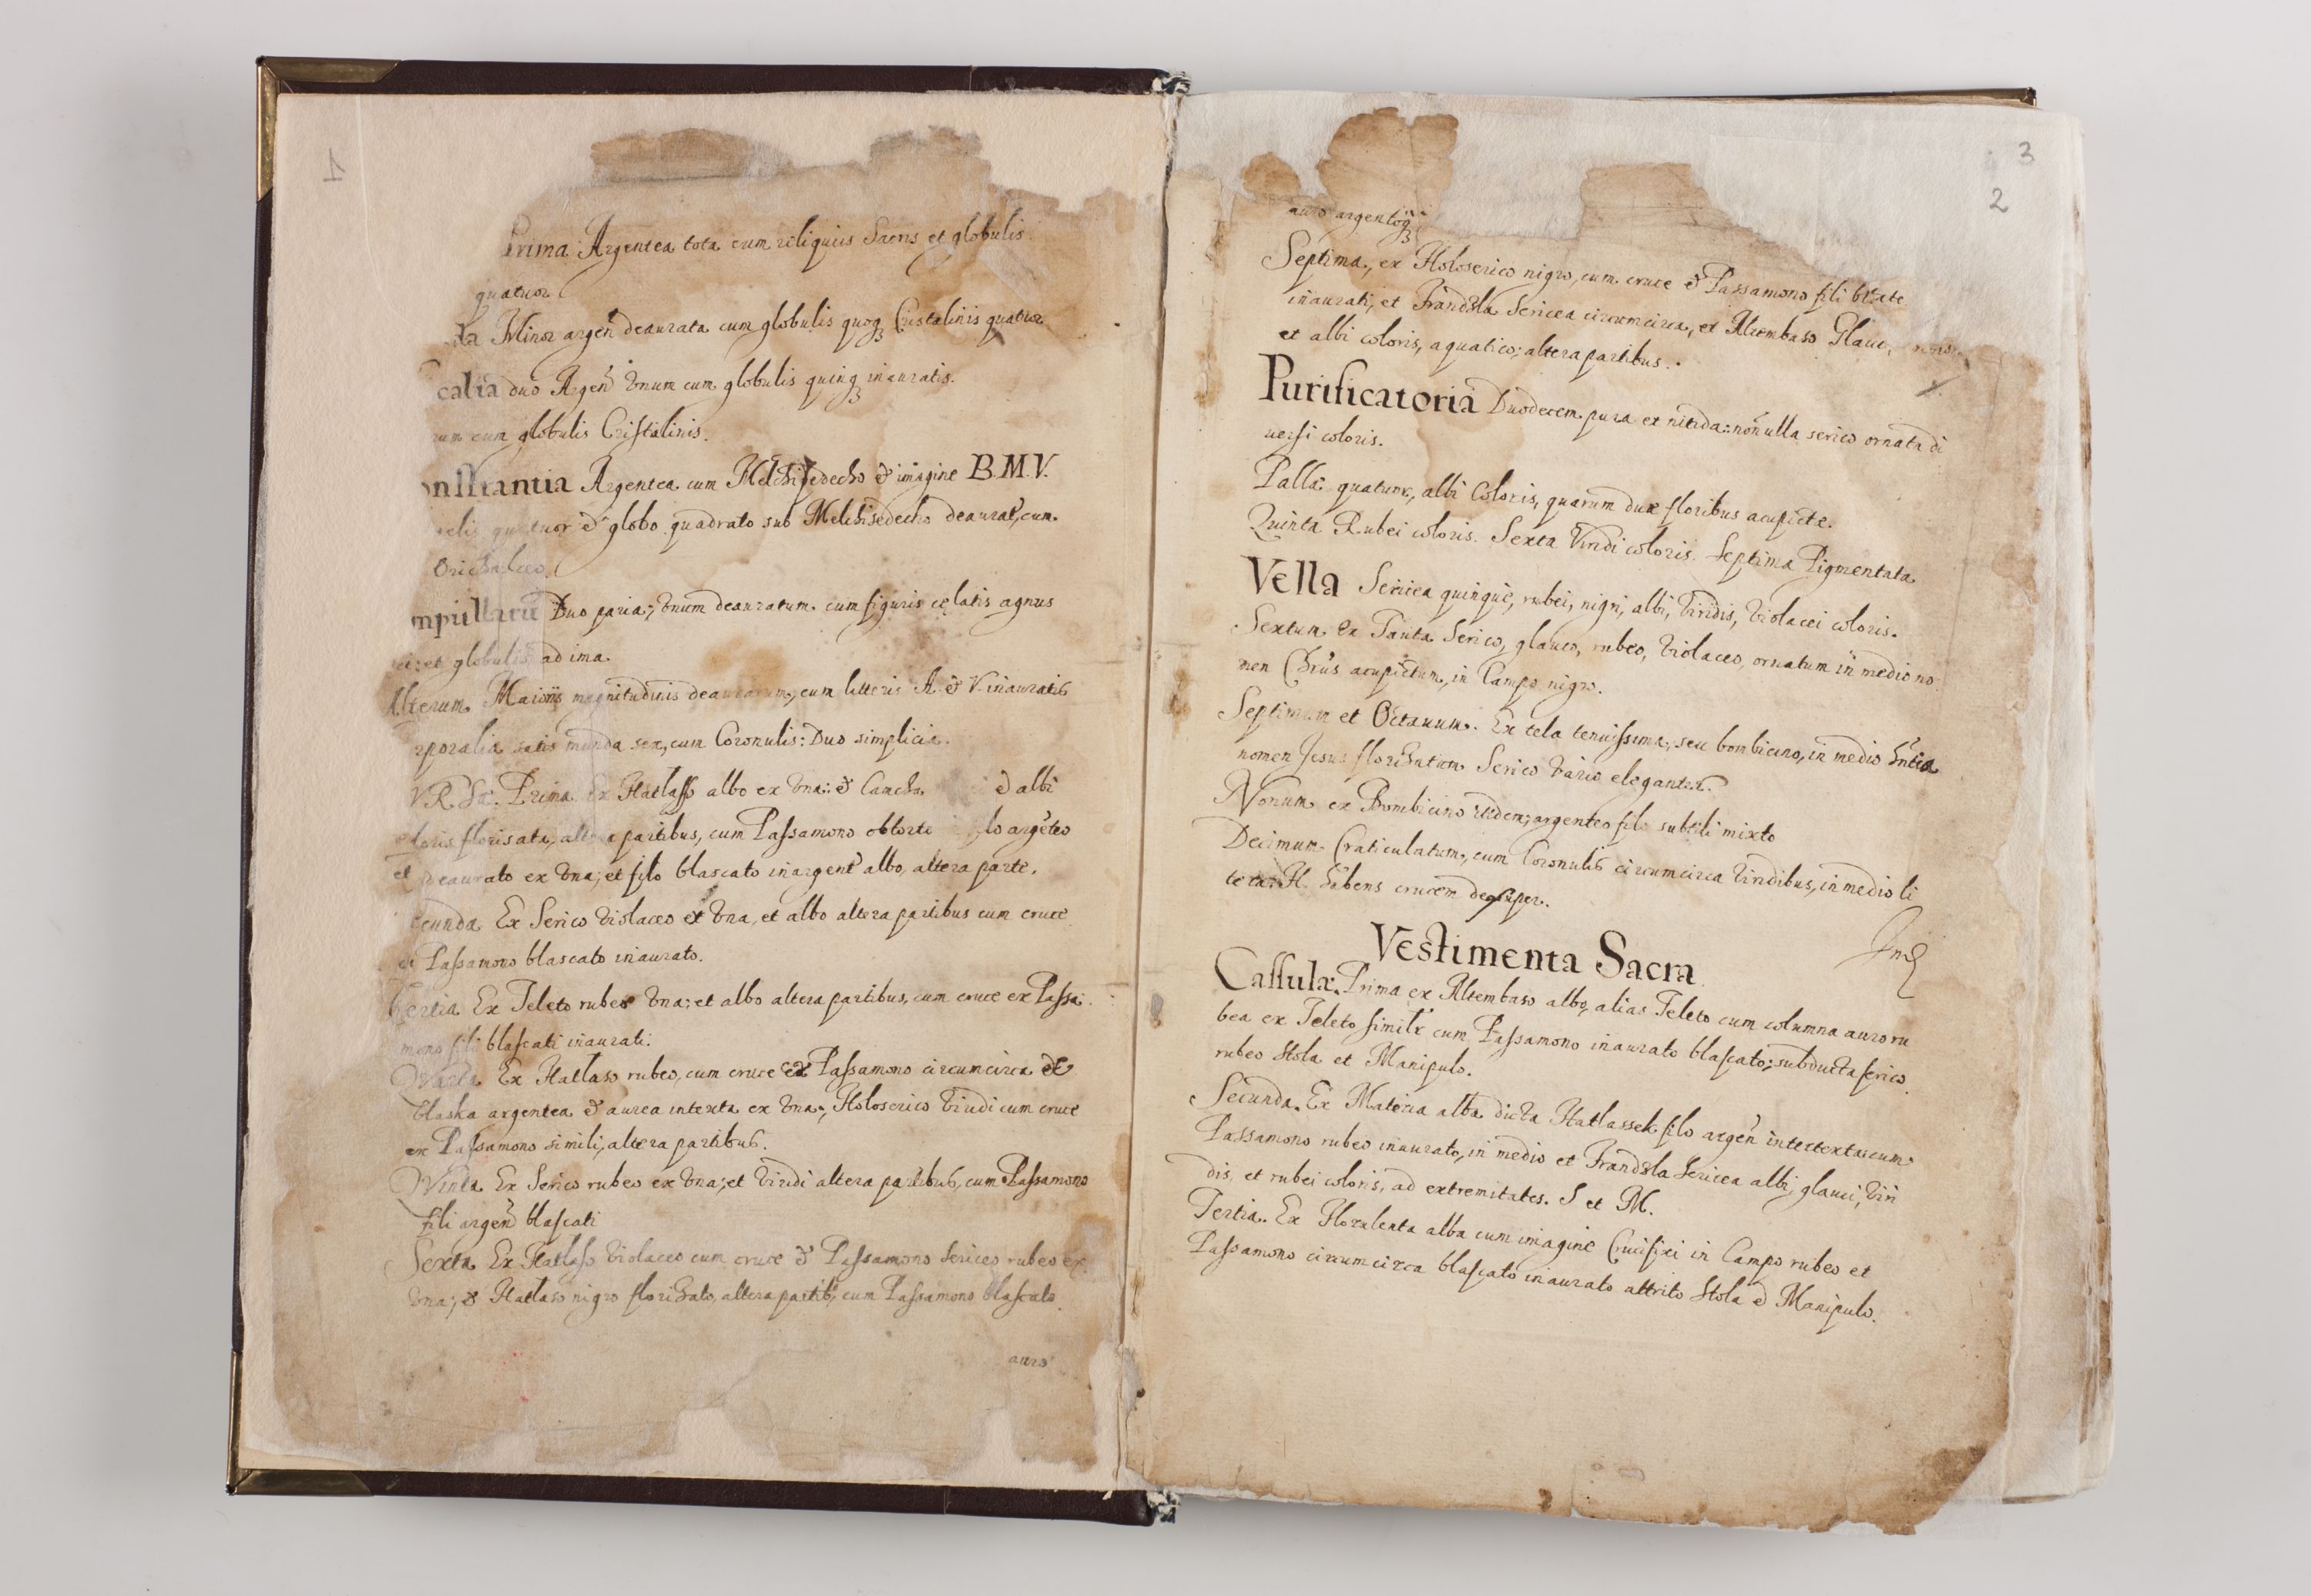 1
Prima Argentea tota cum reliquiis Sacris et globulis
quatuor
Minor argen̄ deaurata cum globulis quoq₃ Cristalinis quatuor
calia duo Argen̄ Vnum cum globulis quinq₃ inauratis.
cum globulis Cristalinis.
onstrantia Argentea cum Melchisedecho & imagine B.M.V.
quatuor & globo quadrato sub Melchisedecho deaurat, cum
Orichalceo.
mpullarū Duo paria; Vnum deauratum cum figuris cęlatis agnus
ei: et globulis ad ima.
Alterum Maioris magnitudinis deauratum, cum litteris A. & V. inauratis
rporalia satis munda sex, cum Coronulis: Duo simplicia.
Prima Ex Hatlass albo ex Vna: & Camcha & albi
loris florisata, altera partibus, cum Passamono obtorto filo argēteo
et deaurato ex Vna; et filo blascato inargent albo, altera parte.
ecunda Ex Serico Violaceo ex Vna, et albo altera partibus cum cruce
ex Passamono blascato inaurato.
Tertia Ex Teleto rubeo Vna; et albo altera partibus, cum cruce ex Passa
mono fili blascati inaurati.
Quarta Ex Hatlaso rubeo, cum cruce ex Passamono circumcirca de
blaska argentea & aurea intexta ex Vna; Holoserico Viridi cum cruce
ex Passamono simili, altera partibus.
Quinta Ex Serico rubeo ex Vna; et Viridi altera partibus, cum Passamono
fili argen̄ blascati
Sexta Ex Hatlass Violaceo cum cruce & Passamono Sericeo rubeo ex
Vna; & Hatlaso nigro florisato, altera partib, cum Passamono blascato
auro
3
2
auro argentoq₃
Septima, ex Holoserico nigro, cum cruce & Passamono fili
inaurati, et Frandsla Sericea circumcirca, et Altembaso Glauc
et albi coloris, aquatico; altera partibus.
Purificatoria Duodecem pura et nitida: nōnulla serico ornata di
uersi coloris.
Palla quatuor, albi Coloris, quarum duæ floribus acupictæ.
Quinta Rubei coloris. Sexta Viridi coloris. Septima Pigmentata
Vella Sericea quinque, rubei, nigri, albi, Viridis, Violacei coloris.
Sextum Ex Tanta Serico, glauco, rubeo, Violaceo, ornatum in medio no
men Chrūs acupictum, in Campo nigro.
Septimum et Octauum. Ex tela tenuissima, seu bombicino, in medio
nomen Jesus florisatum Serico Vario eleganter.
Nonum ex Bombicino itidem, argenteo filo subtili mixto
Decimum Craticulatum, cum Coronulis circumcirca Viridibus, in medio li
tera H. habens crucem desuper.
Vestimenta Sacra
Cassulæ. Prima ex Altembaso albo, alias Teleto cum columna auro ru
bea ex Teleto simili cum Passamono inaurato blascato; subducta serico
rubeo Stola et Manipulo.
Secunda. Ex Materia alba dicta Hatlassek filo argen̄ intertexta: cum
Passamono rubeo inaurato, in medio et Frandsla Sericea albi, glauci, Viri
dis, et rubei coloris, ad extremitates. S et M.
Tertia. Ex Florulenta alba cum imagine Crucifixi in Campo rubeo et
Passamono circumcirca blascato inaurato attrito Stola & Manipulo.